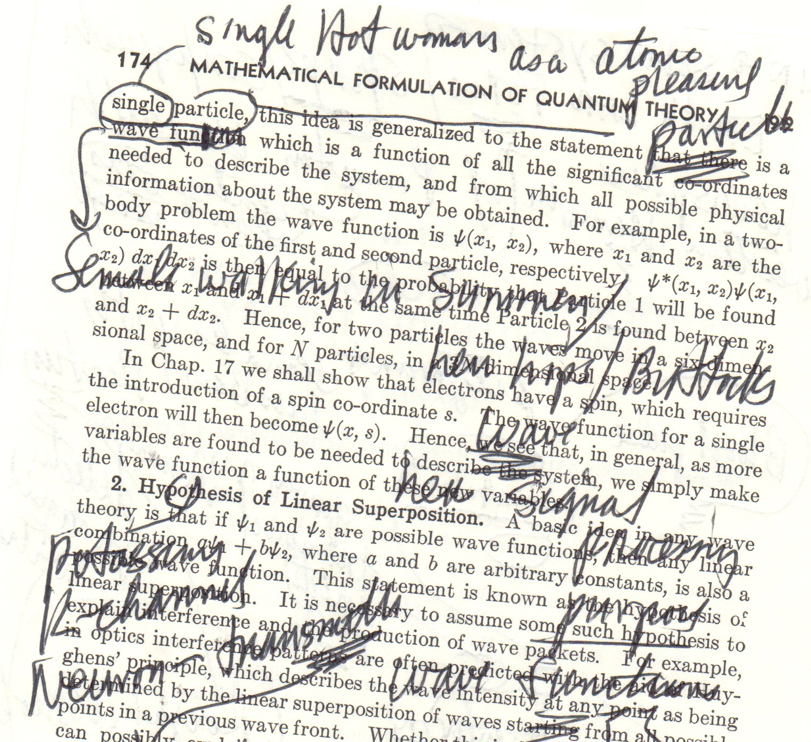 single Hot woman as a atomic
pleasent
particle
174 MATHEMATICAL FORMULATION OF QUANTUM THEORY
single particle, this idea is generalized to the statement that there is a
wave function which is a function of all the significant co-ordinates
needed to describe the system, and from which all possible physical
information about the system may be obtained. For example, in a two-
body problem the wave function is ψ(x₁, x₂), where x₁ and x₂ are the
co-ordinates of the first and second particle, respectively. ψ*(x₁, x₂)ψ(x₁,
x₂) dx₁ dx₂ is then equal to the probability that Particle 1 will be found
Female walking in Summer/
between x₁ and x₁ + dx₁ at the same time Particle 2 is found between x₂
and x₂ + dx₂. Hence, for two particles the waves move in a six-dimen-
sional space, and for N particles, in 3N-dimensional space.
her hips/Buttocks
In Chap. 17 we shall show that electrons have a spin, which requires
the introduction of a spin co-ordinate s. The wave function for a single
electron will then become ψ(x, s). Hence, we see that, in general, as more
wave
variables are found to be needed to describe the system, we simply make
the wave function a function of these new variables.
her signal
2. Hypothesis of Linear Superposition. A basic idea in any wave
theory is that if ψ₁ and ψ₂ are possible wave functions, then any linear
processing
combination aψ₁ + bψ₂, where a and b are arbitrary constants, is also a
possible wave function. This statement is known as the hypothesis of
potassium
linear superposition. It is necessary to assume some such hypothesis to
p-channel
purpose
explain interference and the production of wave packets. For example,
transmits
in optics interference patterns are often predicted with the aid of Huy-
Neuron
wave functions
ghens' principle, which describes the wave intensity at any point as being
determined by the linear superposition of waves starting from all possible
points in a previous wave front. Whether this is
can possibly